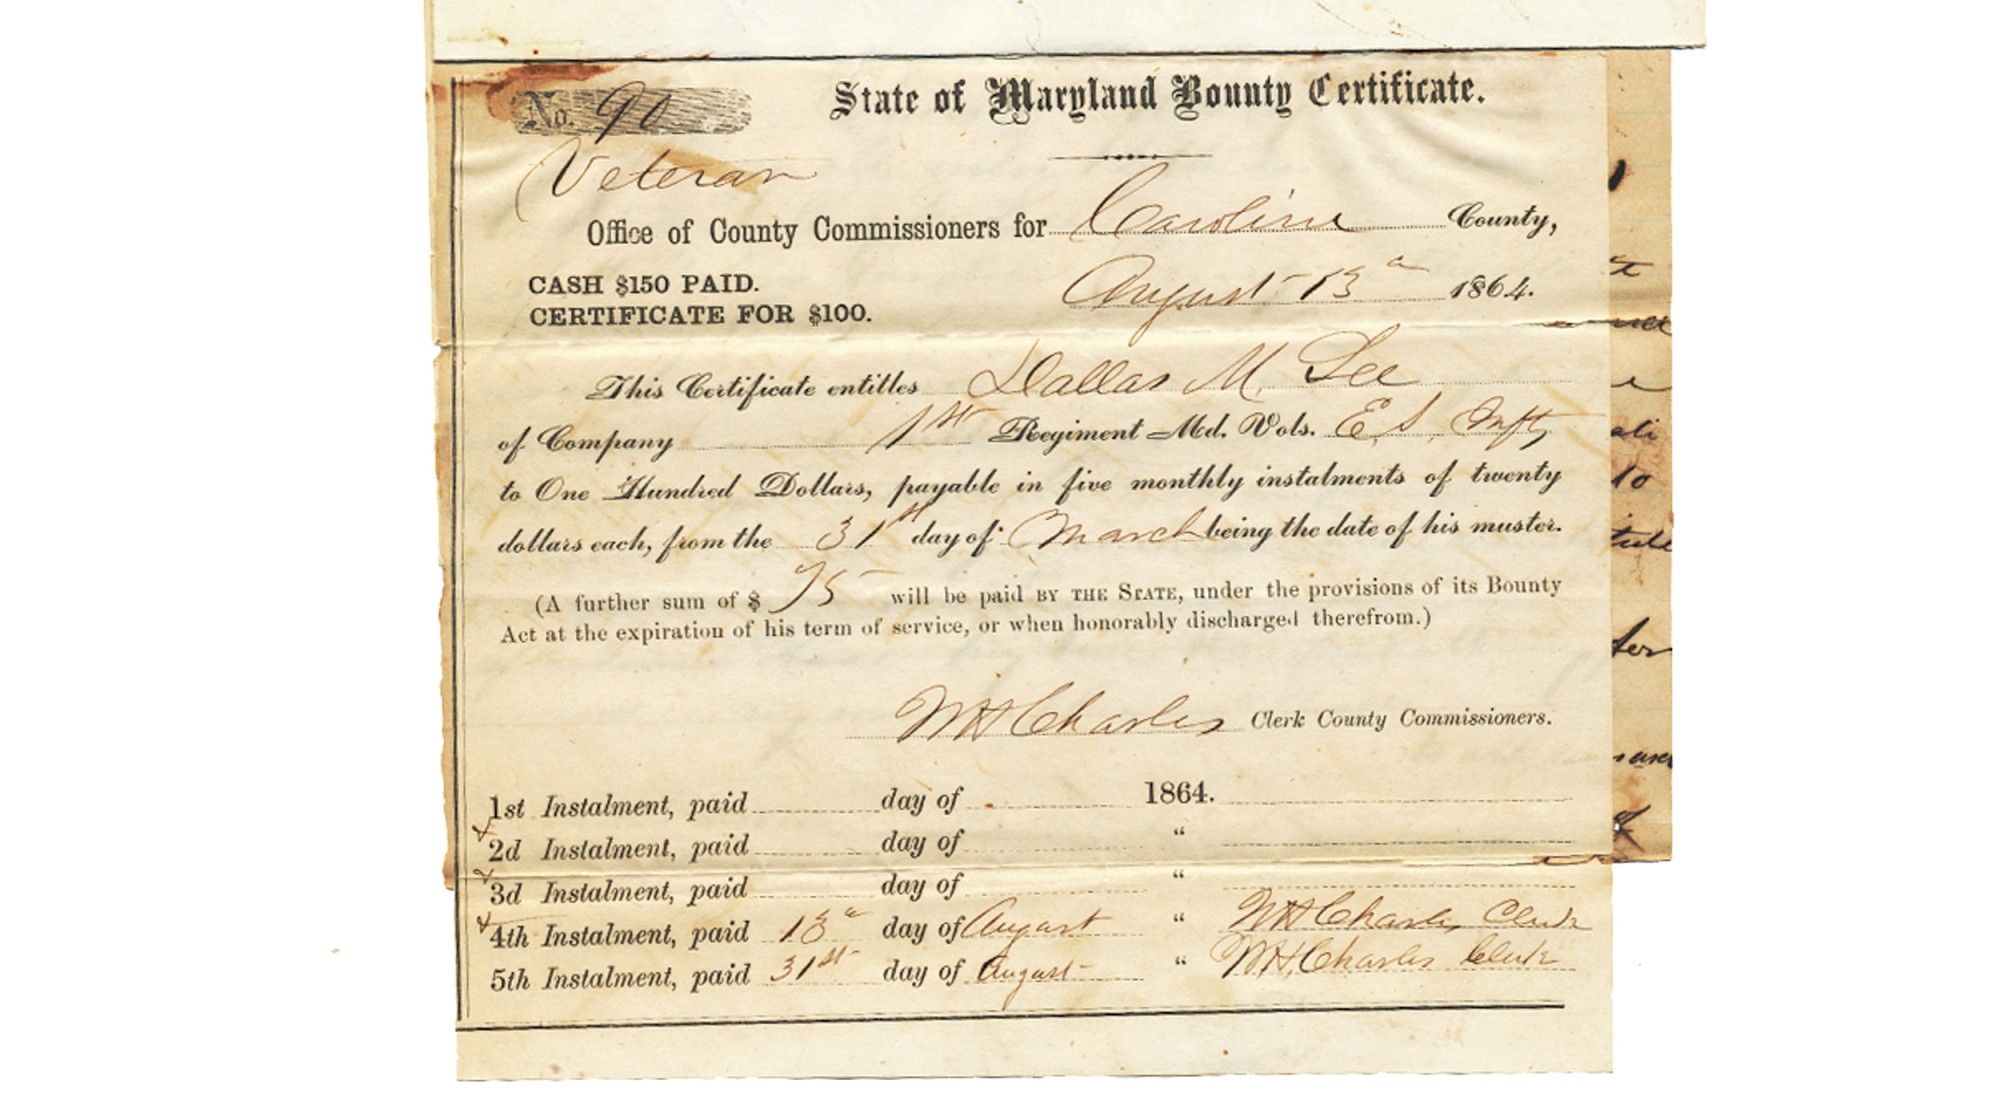 No. 90
State of Maryland Bounty Certificate.
Veteran
Office of County Commissioners for Caroline County,
CASH $150 PAID.
August 13" 1864.
CERTIFICATE FOR $100.
This Certificate entitles Dallas M. Lee
of Company 1st Regiment Md. Vols. E. S. Infty
to One Hundred Dollars, payable in five monthly instalments of twenty
dollars each, from the 31st day of March being the date of his muster.
(A further sum of $ 75 will be paid BY THE STATE, under the provisions of its Bounty
Act at the expiration of his term of service, or when honorably discharged therefrom.)
WH Charles Clerk County Commissioners.
1st Instalment, paid day of 1864.
2d Instalment, paid day of "
3d Instalment, paid day of "
4th Instalment, paid 13" day of August " WH Charles Clerk
5th Instalment, paid 31st day of August " WH. Charles Clerk
to